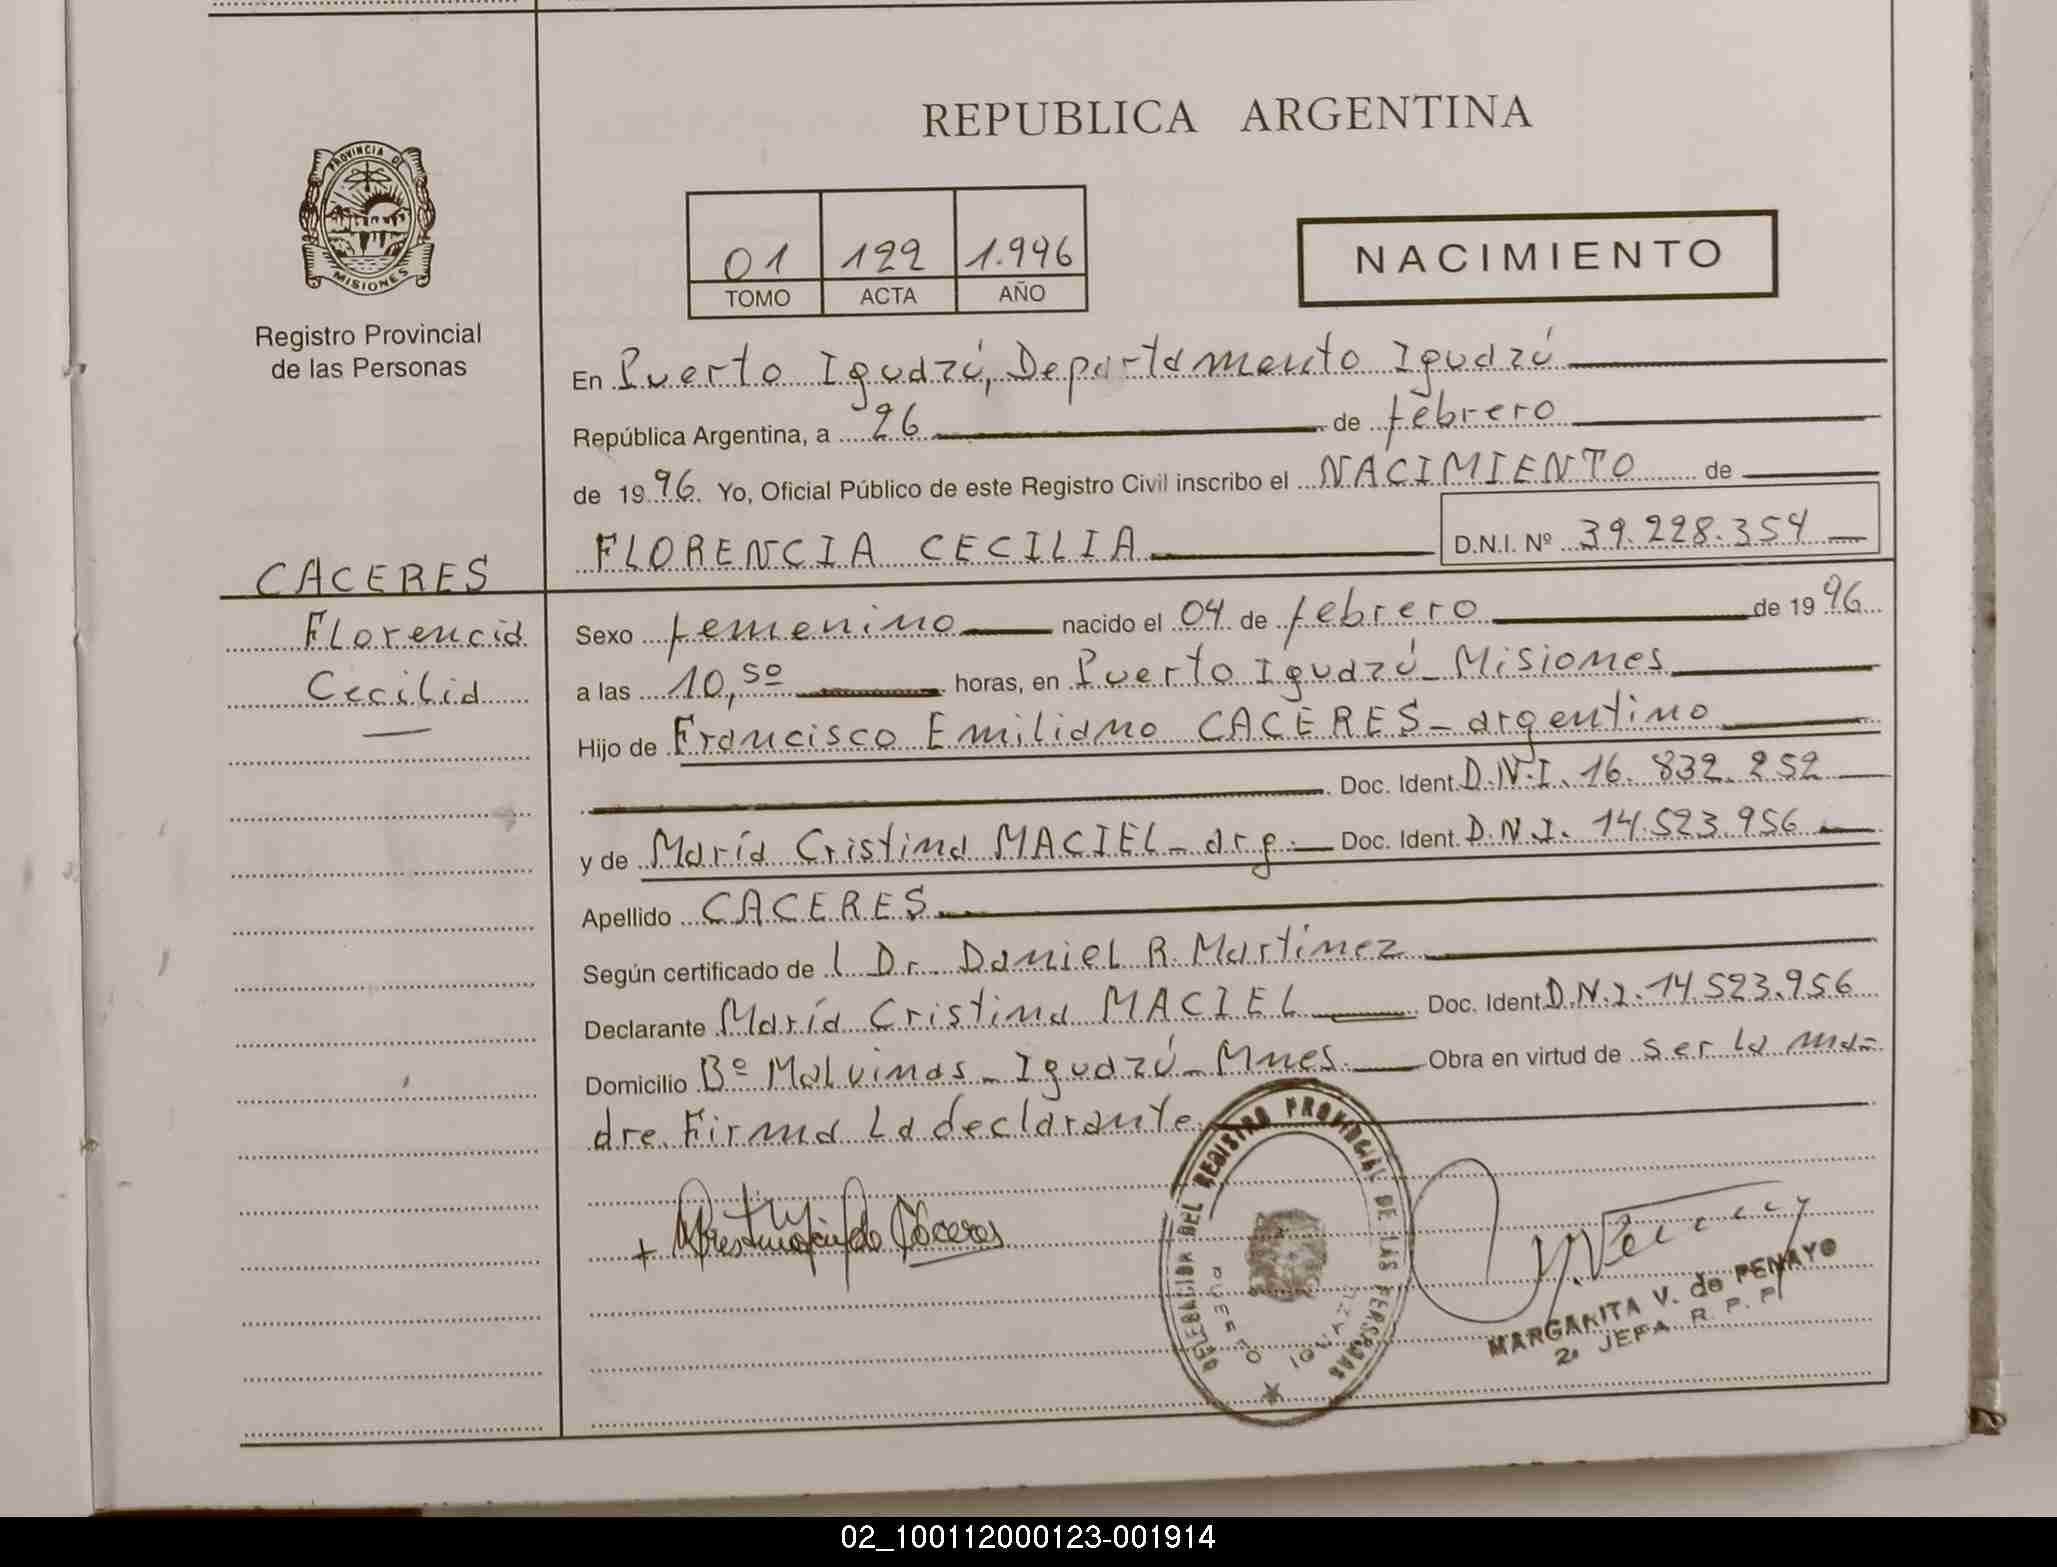 REPUBLICA ARGENTINA
PROVINCIA DE
MISIONES
Registro Provincial
de las Personas
01 122 1.996
TOMO ACTA AÑO
NACIMIENTO
En Puerto Iguazú, Departamento Iguazú
República Argentina, a 26 de febrero
de 1996 Yo, Oficial Público de este Registro Civil inscribo el NACIMIENTO de
FLORENCIA CECILIA D.N.I. Nº 39.228.354
CACERES
Florencia
Cecilia
Sexo femenino nacido el 04 de febrero de 1996
a las 10,50 horas, en Puerto Iguazú - Misiones
Hijo de Francisco Emiliano CACERES - argentino
Doc. Ident. D.N.I. 16.832.252
y de María Cristina MACIEL - arg. Doc. Ident. D.N.I. 14.523.956
Apellido CACERES
Según certificado de l Dr. Daniel R. Martinez
Declarante María Cristina MACIEL Doc. Ident. D.N.I. 14.523.956
Domicilio Bº Malvinas - Iguazú - Mnes. Obra en virtud de ser la ma-
dre. Firma la declarante.
DELEGACION DEL REGISTRO PROVINCIAL DE LAS PERSONAS
PUERTO IGUAZU
MARGARITA V. de PENAYO
2ª JEFA R. P. P.
02_100112000123-001914